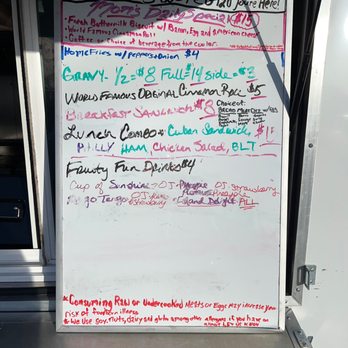 Mom's Daily Special $15
• Fresh Buttermilk Biscuit w/ Bacon, Egg and American Cheese
• World Famous Cinnamon Roll
• Coffee or Choice of beverage from the cooler.
Home Fries w/ peppers & onion $4
Gravy - 1/2 = $8 Full $14 side = $3
World Famous Original Cinnamon Roll $5
Breakfast Sandwich $8 Choice of:
Lunch Combo Cuban Sandwich, $11
Philly Ham, Chicken Salad, BLT
Fruity Fun Drinks $4
Cup of Sunshine = OJ-
OJ, strawberry,
Island Delight ALL
* Consuming Raw or Undercooked Meats or Eggs may increase your
risk of foodborn illness
* We use soy, nuts, dairy and gluten among other allergens if you have an